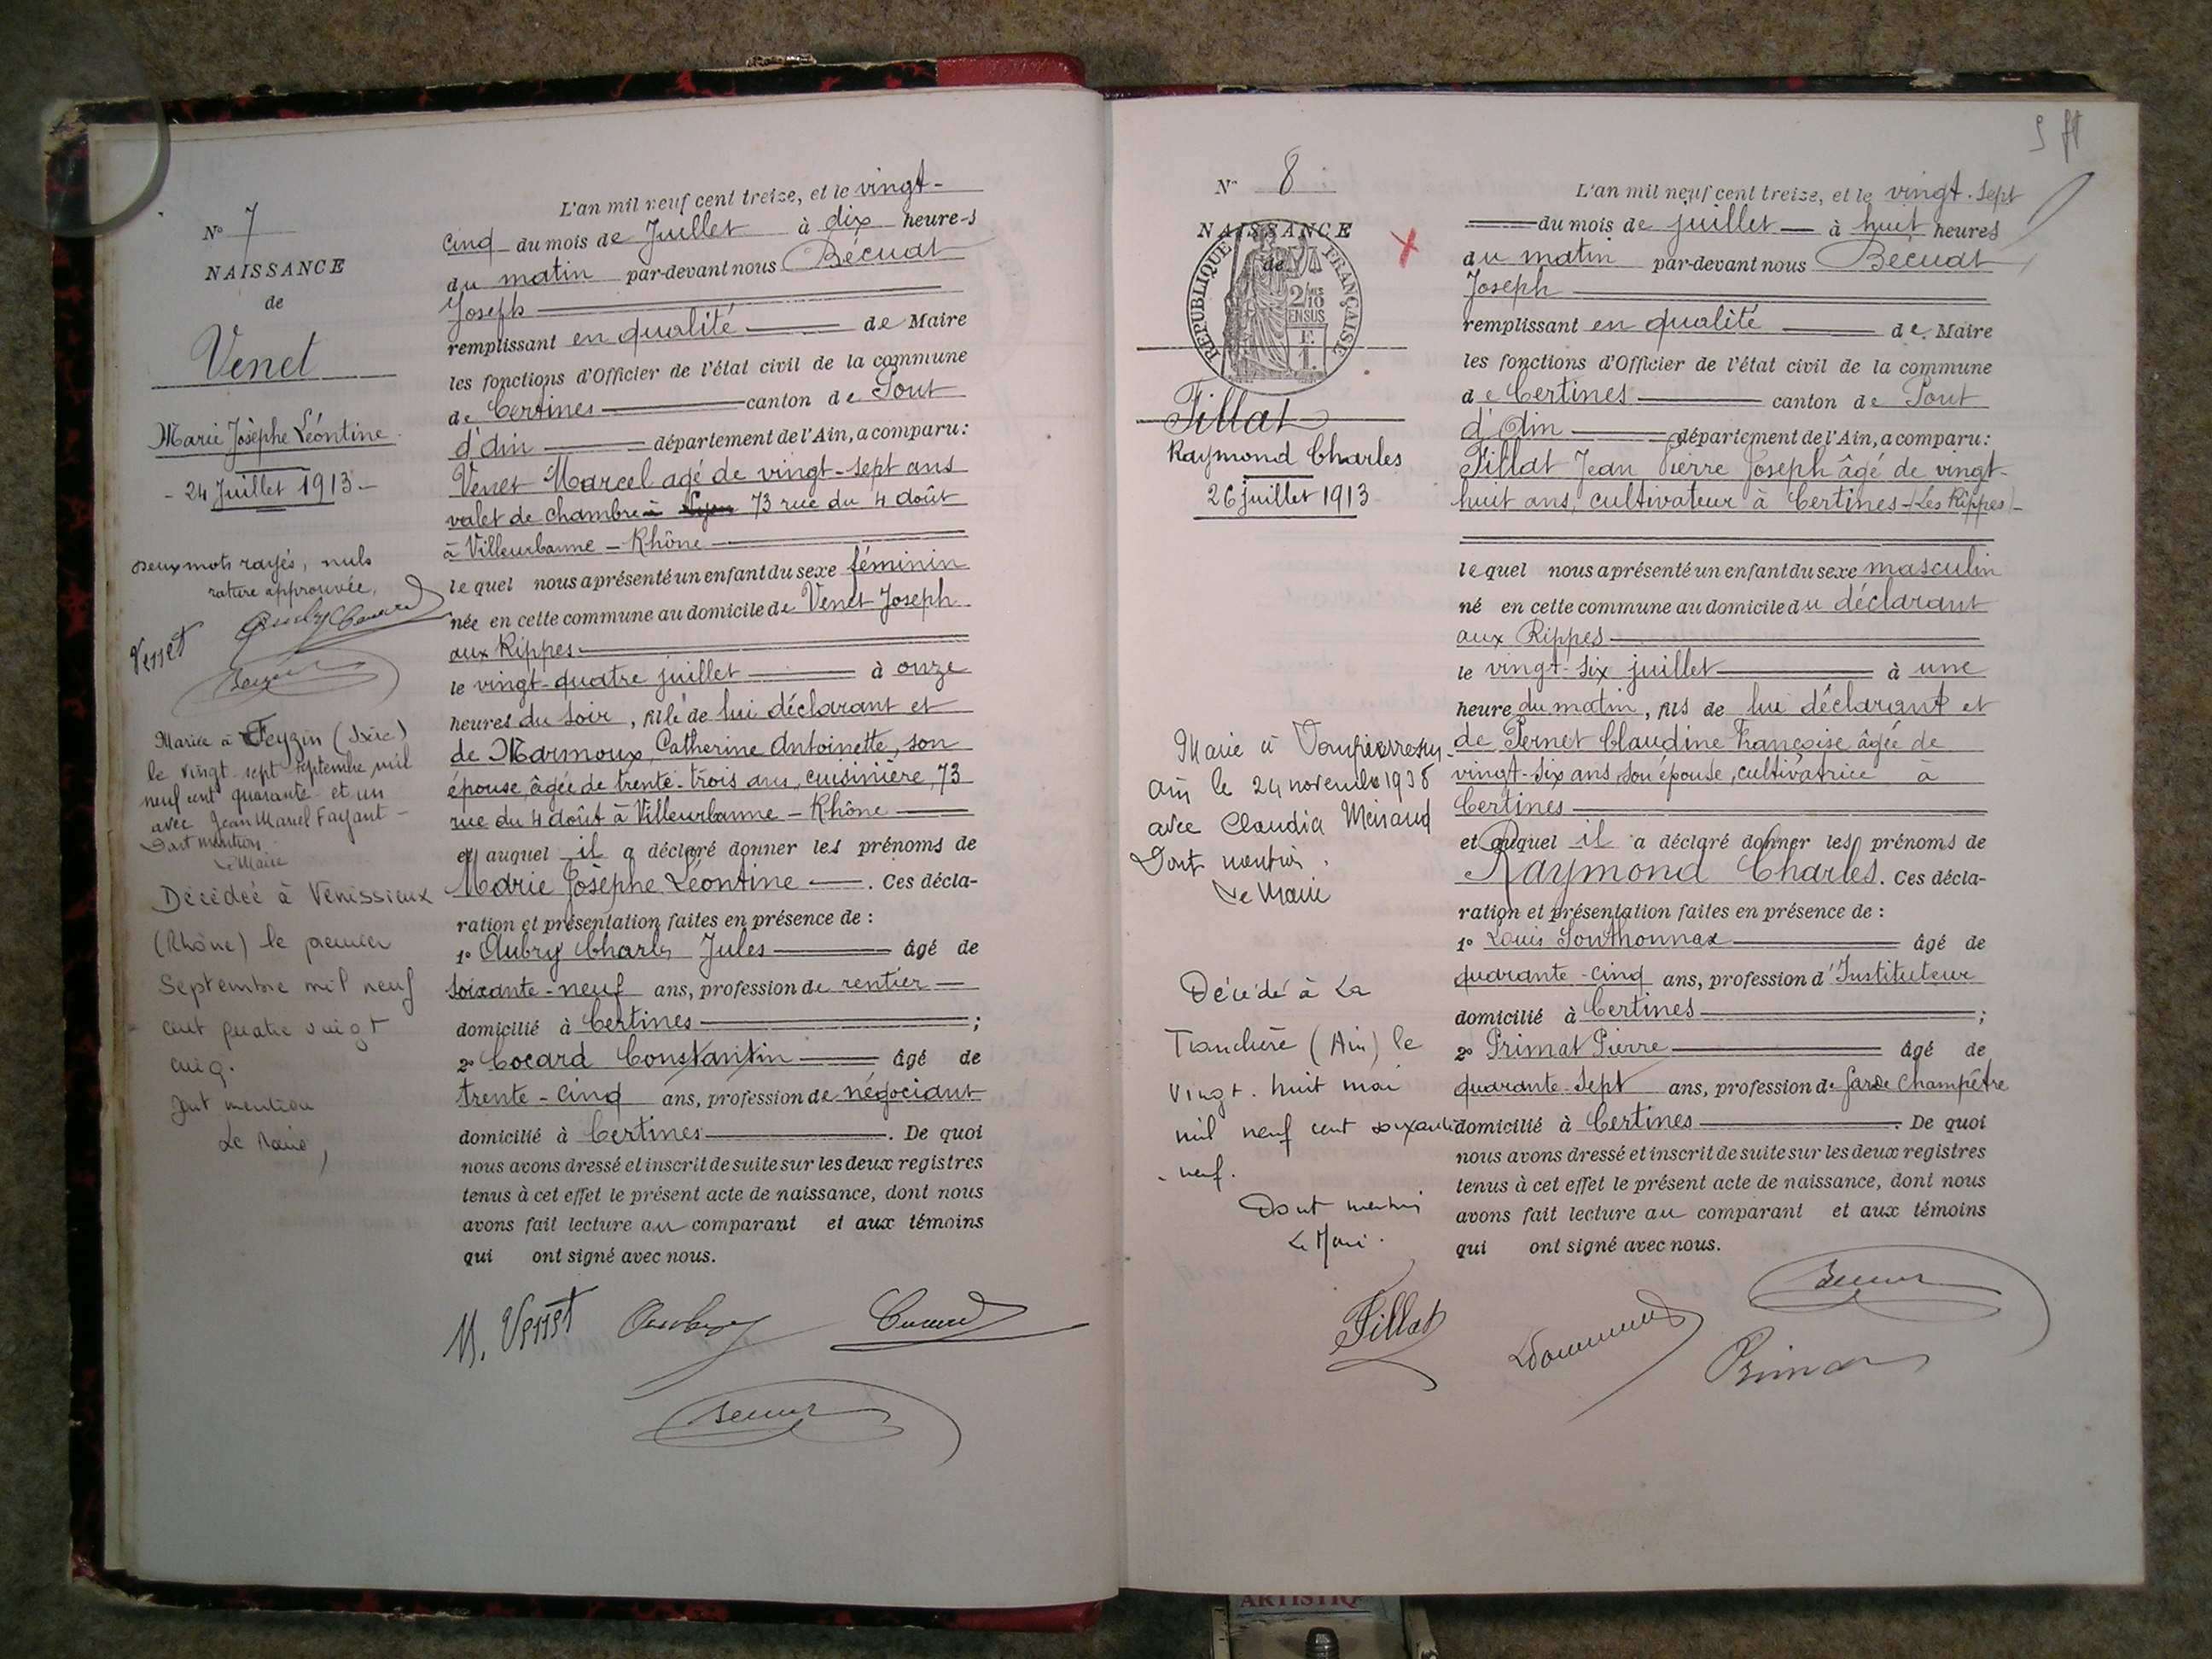 N° 7
NAISSANCE
de
Venet
Marie Josèphe Léontine
- 24 Juillet 1913 -
Deux mots rayés, nuls
rature approuvée,
Venet
Mariée à Feyzin (Isère)
le vingt-sept septembre mil
neuf cent quarante et un
avec Jean Marcel Fayant -
Dont mention
Le Maire
Décédée à Venissieux
(Rhône) le premier
Septembre mil neuf
cent quatre vingt
cinq.
Dont mention
Le Maire,
L'an mil neuf cent treize, et le vingt-
cinq du mois de Juillet à dix heures
du matin par-devant nous Bécuat
Joseph
remplissant en qualité de Maire
les fonctions d'Officier de l'état civil de la commune
de Certines canton de Pont
d'Ain département de l'Ain, a comparu :
Venet Marcel agé de vingt-sept ans
valet de chambre à Lyon 73 rue du 4 août
à Villeurbanne - Rhône
lequel nous a présenté un enfant du sexe féminin
née en cette commune au domicile de Venet Joseph
aux Rippes
le vingt-quatre juillet à onze
heures du soir, fille de lui déclarant et
de Marmoux, Catherine Antoinette, son
épouse, âgée de trente-trois ans, cuisinière, 73
rue du 4 août à Villeurbanne - Rhône
et auquel il a déclaré donner les prénoms de
Marie Josèphe Léontine. Ces décla-
ration et présentation faites en présence de :
1° Aubry Charles Jules âgé de
soixante-neuf ans, profession de rentier
domicilié à Certines ;
2° Cocard Constantin âgé de
trente-cinq ans, profession de négociant
domicilié à Certines. De quoi
nous avons dressé et inscrit de suite sur les deux registres
tenus à cet effet le présent acte de naissance, dont nous
avons fait lecture au comparant et aux témoins
qui ont signé avec nous.
M. Venet Aubry
N° 8
NAISSANCE
de
RÉPUBLIQUE FRANÇAISE
2/10
EN SUS
F.
1.
Fillat
Raymond Charles
26 juillet 1913
Ain le 24 novembre 1938
avec Claudia
Dont mention.
Le Maire
Décédé à La
Tranclière (Ain) le
vingt-huit mai
mil neuf cent soixante
- neuf.
Dont mention
Le Maire.
L'an mil neuf cent treize, et le vingt-sept
du mois de juillet à huit heures
du matin par-devant nous Bécuat
Joseph
remplissant en qualité de Maire
les fonctions d'Officier de l'état civil de la commune
de Certines canton de Pont
d'Ain département de l'Ain, a comparu :
Fillat Jean Pierre Joseph âgé de vingt-
huit ans, cultivateur à Certines - (Les Rippes) -
lequel nous a présenté un enfant du sexe masculin
né en cette commune au domicile du déclarant
aux Rippes
le vingt-six juillet à une
heure du matin, fils de lui déclarant et
de Pernet Claudine Françoise, âgée de
vingt-six ans, son épouse, cultivatrice à
Certines
et auquel il a déclaré donner les prénoms de
Raymond Charles. Ces décla-
ration et présentation faites en présence de :
1° Louis Sonthonnax âgé de
quarante-cinq ans, profession d'Instituteur
domicilié à Certines ;
2° Primat Pierre âgé de
quarante-sept ans, profession de Garde Champêtre
domicilié à Certines. De quoi
nous avons dressé et inscrit de suite sur les deux registres
tenus à cet effet le présent acte de naissance, dont nous
avons fait lecture au comparant et aux témoins
qui ont signé avec nous.
Fillat
Primat
ARTISTIQ